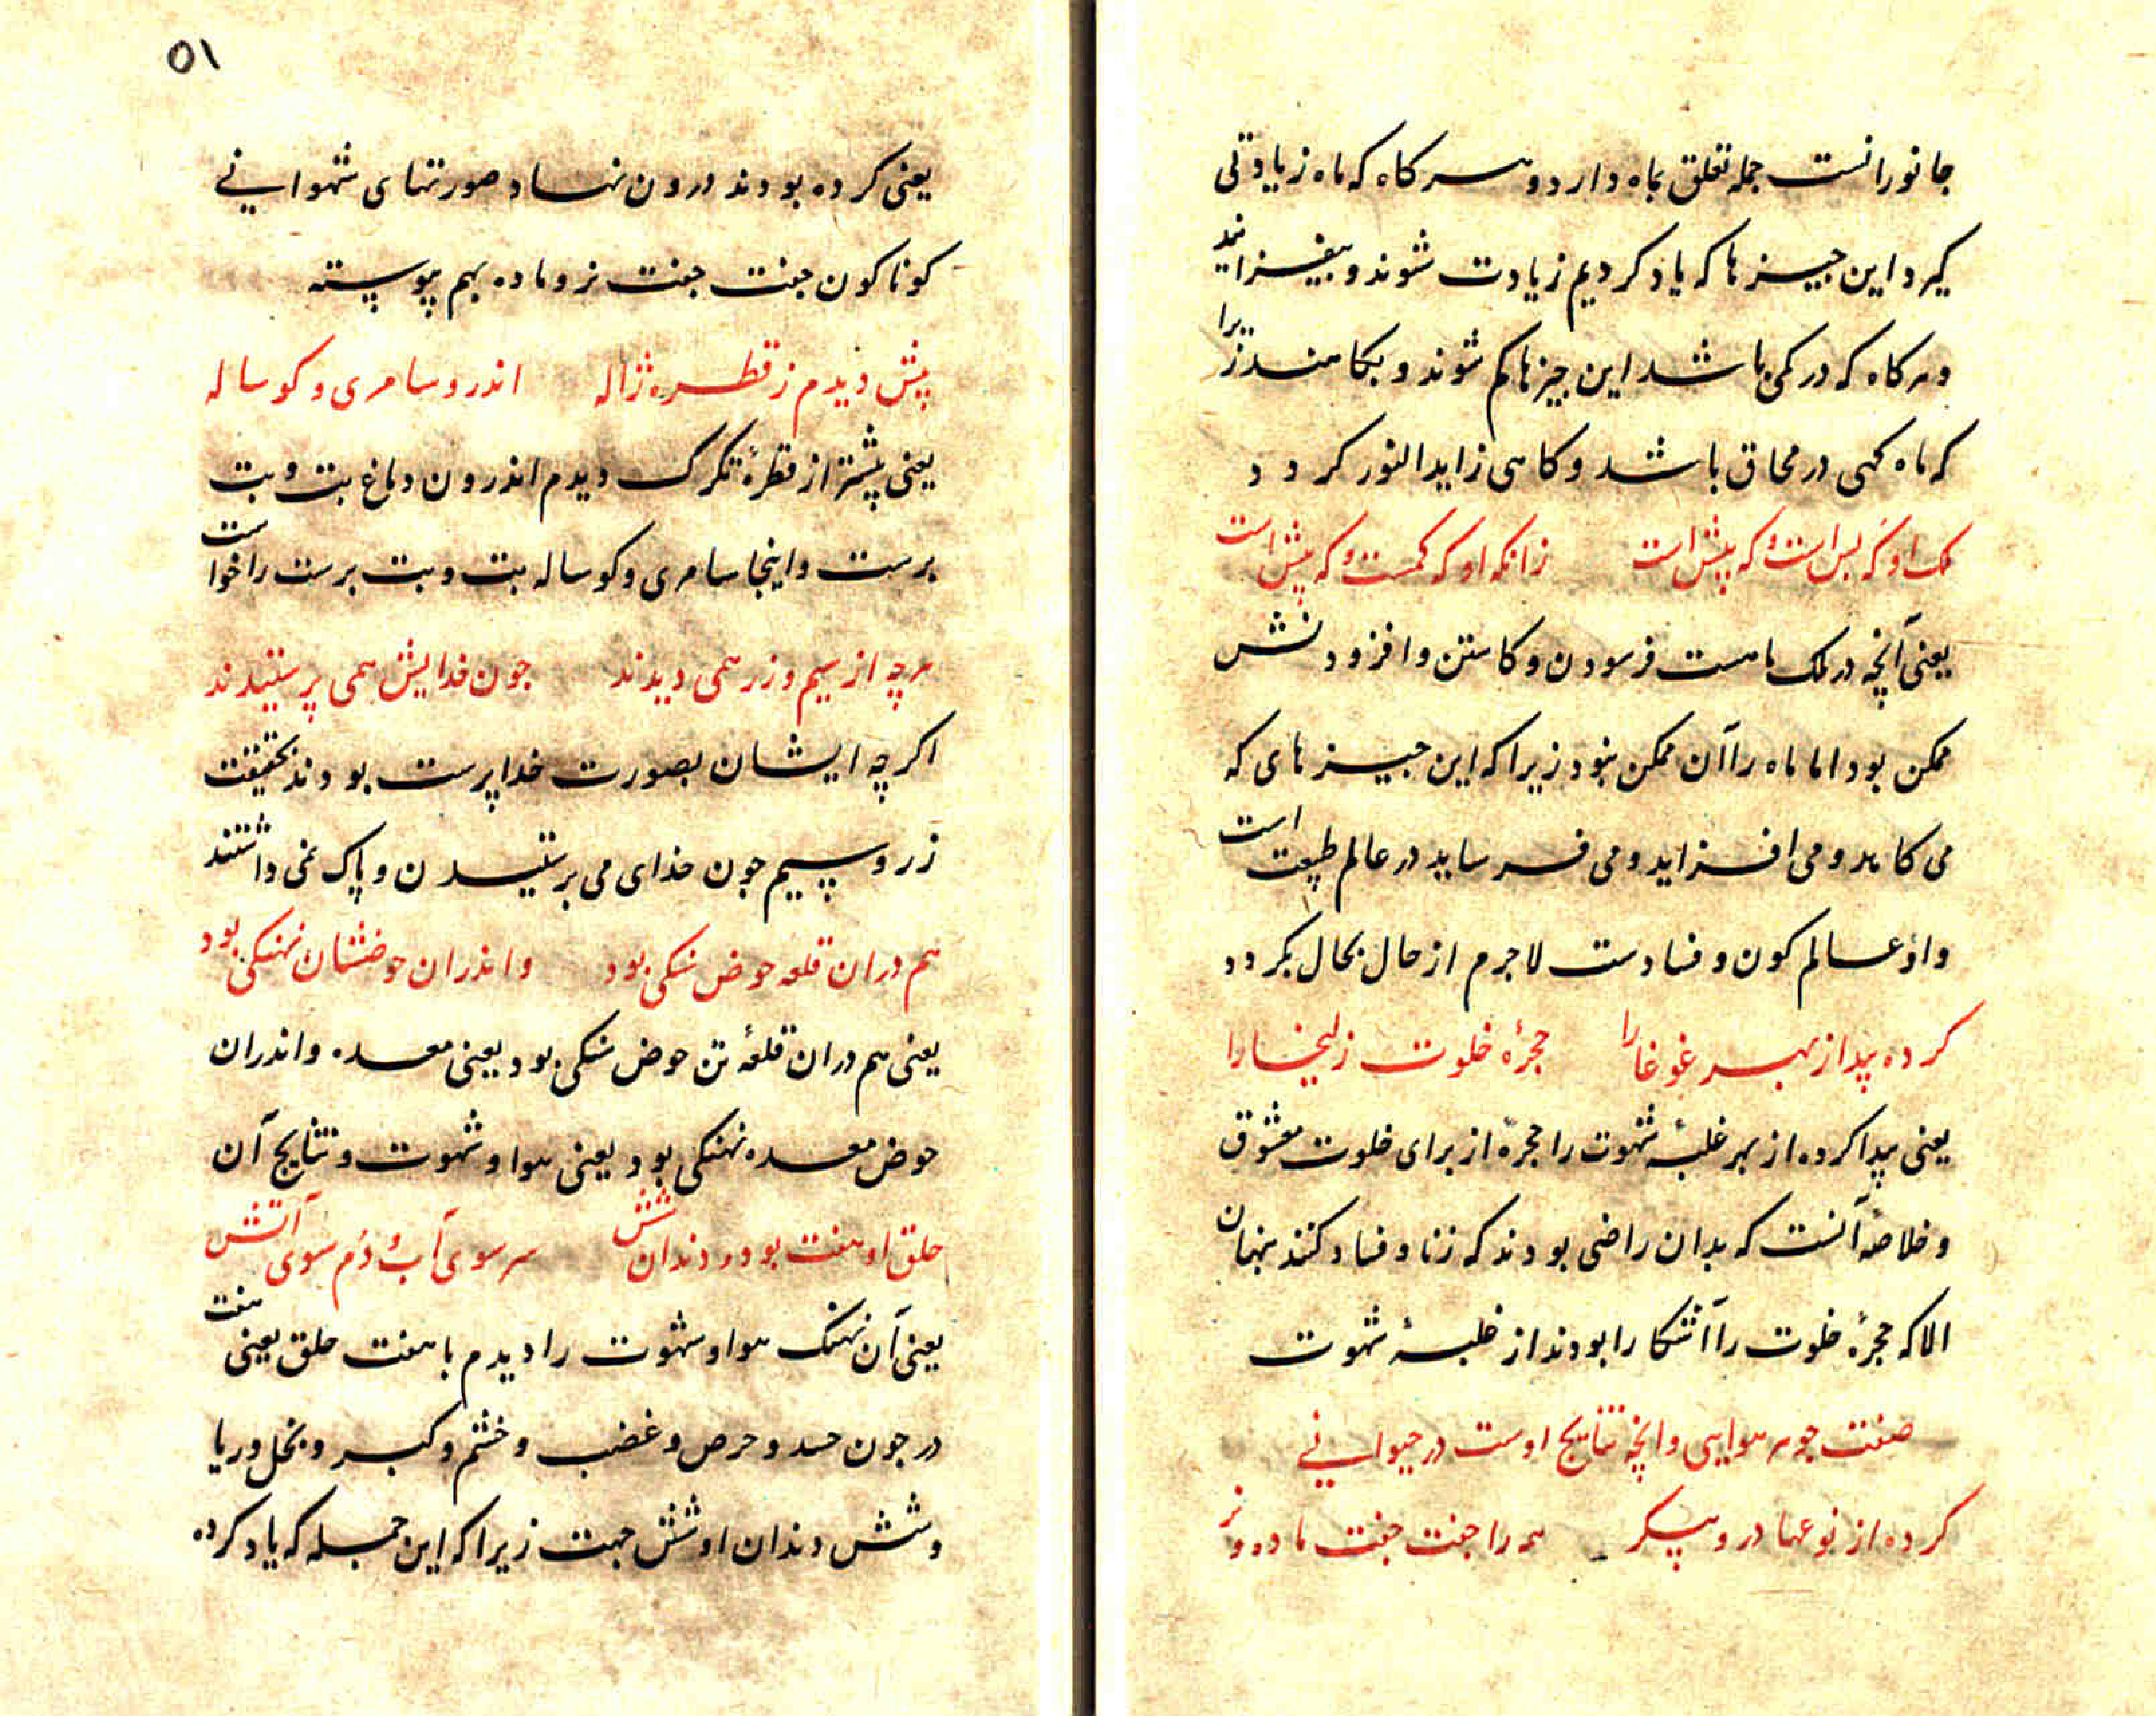 جانورانست جمله تعلق بماه دارد و هر کاه که ماه زیادتی
کیرد این جیزها که یاد کردیم زیادت شوند و بیفزایند
و هر کاه که در کمی باشد این جیزها کم شوند و بکاهند زیرا
که ماه کهی در محاق باشد و کاهی زاید النور کردد
ملک او که بس است و که پیش است زانکه او که کمست و که بیش است
یعنی آنچه در ملک ماهست فرسودن و کاستن و افزودنش
ممکن بود اما ماه را آن ممکن نبود زیرا که این جیزهای که
می کاهد و می افزاید و می فرساید در عالم طبیعت است
و او عالم کون و فسادست لاجرم از حال بحال بکردد
کرده پیدا ز بهر غوغا را حجرهٔ خلوت زلیخا را
یعنی پیدا کرده از بهر غلبهٔ شهوت را حجره از برای خلوت معشوق
و خلاصه آنست که بدان راضی بودند که زنا و فساد کنند پنهان
الا که حجرهٔ خلوت را آشکارا بودند از غلبهٔ شهوت
صفت جوهر هوایی و انچه نتایج اوست در حیوانی
کرده از نوعها در و پیکر همه را جفت جفت ماده و نر
۵۱
یعنی کرده بودند درون نهاد صورتهای شهوانی
کوناکون جفت جفت نر و ماده بهم پیوسته
پیش دیدم ز قطره ژاله اندرو سامری و کوساله
یعنی پیشتر از قطرهٔ تکرک دیدم اندرون دماغ بت و بت
برست و اینجا سامری و کوساله بت و بت برست را خواست
هرچه از سیم و زر همی دیدند جون خدایش همی پرستیدند
اکرچه ایشان بصورت خدا پرست بودند بحقیقت
زر و سیم جون خدای می برستیدن و پاک نمی داشتند
هم دران قلعه حوض سنکی بود و اندران حوضشان نهنکی بود
یعنی هم دران قلعهٔ تن حوض سنکی بود یعنی معده و اندران
حوض معده نهنکی بود یعنی هوا و شهوت و نتایج آن
حلق او هفت بود و دندان شش سر سوی آب و دم سوی آتش
یعنی آن نهنک هوا و شهوت را دیدم با هفت حلق یعنی هفت
در جون حسد و حرص و غضب و خشم و کبر و بخل و ریا
و شش دندان او شش جهت زیرا که این جمله که یاد کرده